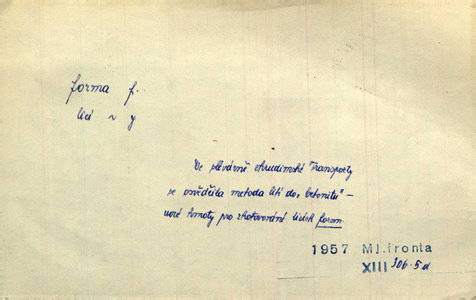 forma f.
licí ~ y
Ve slévárně chrudimské Transporty
se osvědčila metoda lití do „betonitu" –
nové hmoty pro zhotovování licích forem
1957 Ml.fronta
XIII 306-5d